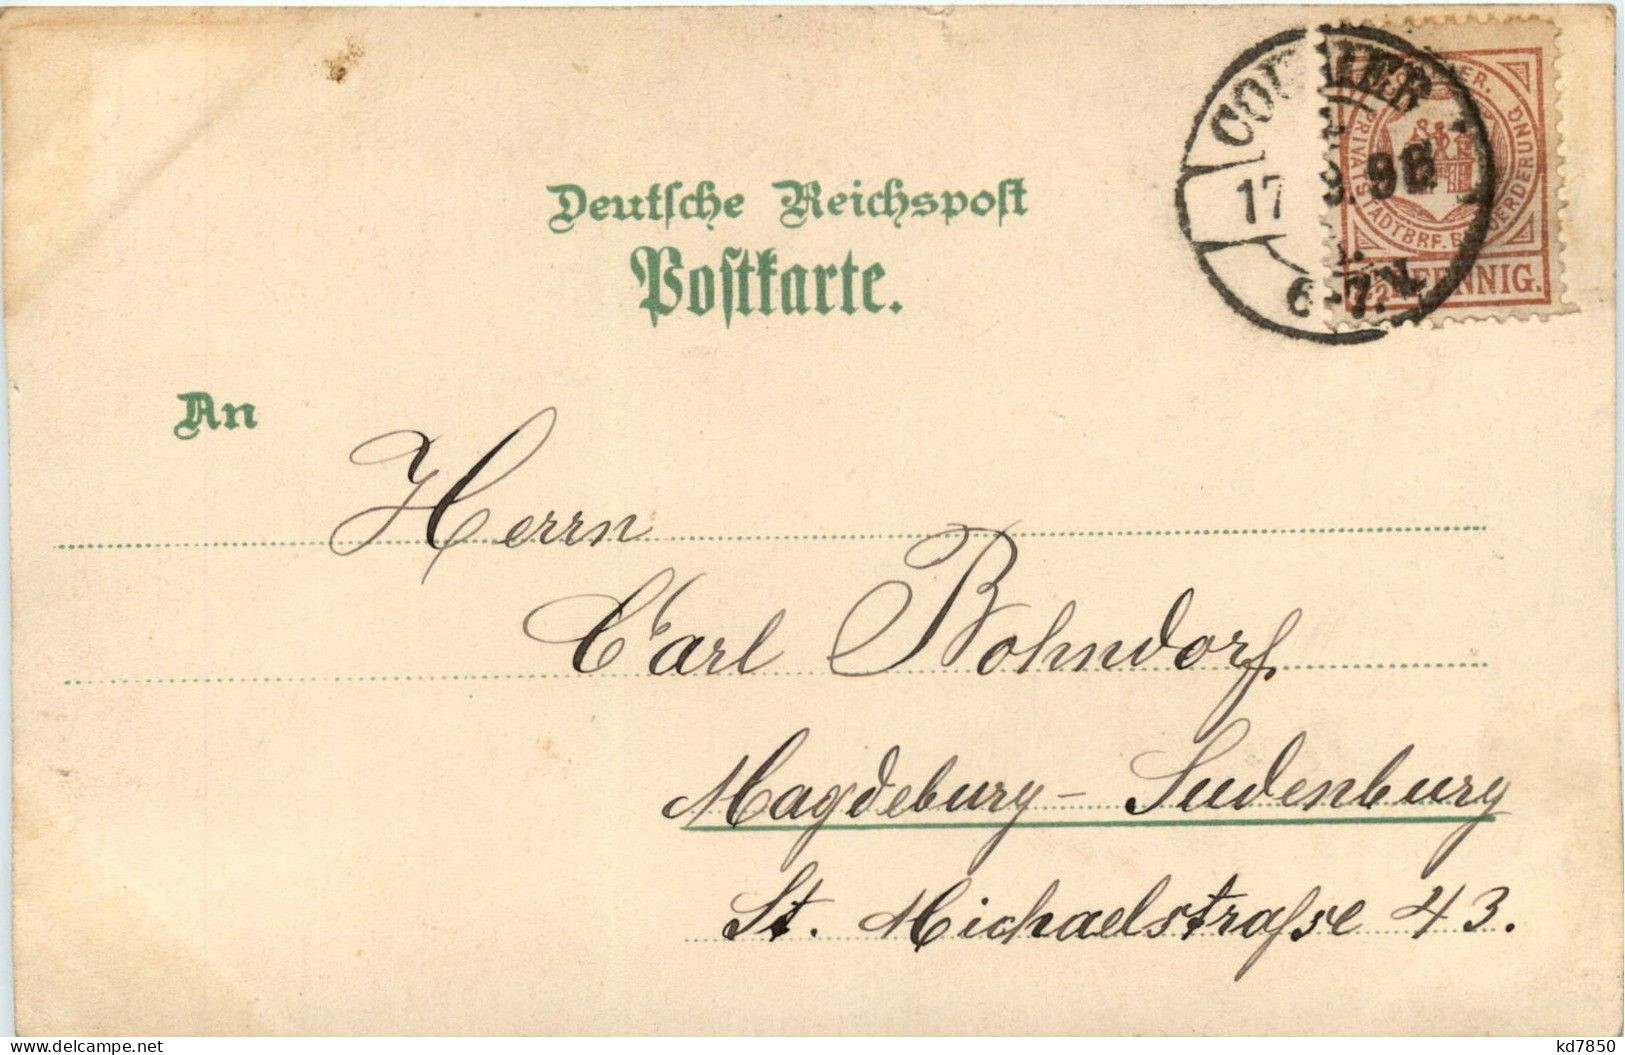 COURIER
17 9. 98
6-7.N.
COURIER. PRIVATSTADTBRF. BEFÖRDERUNG
PFENNIG.
Deutsche Reichspost
Postkarte.
An
Herrn
Carl Bohndorf
Magdeburg - Sudenburg
St. Michaelstraſse 43.
delcampe.net
kd7850